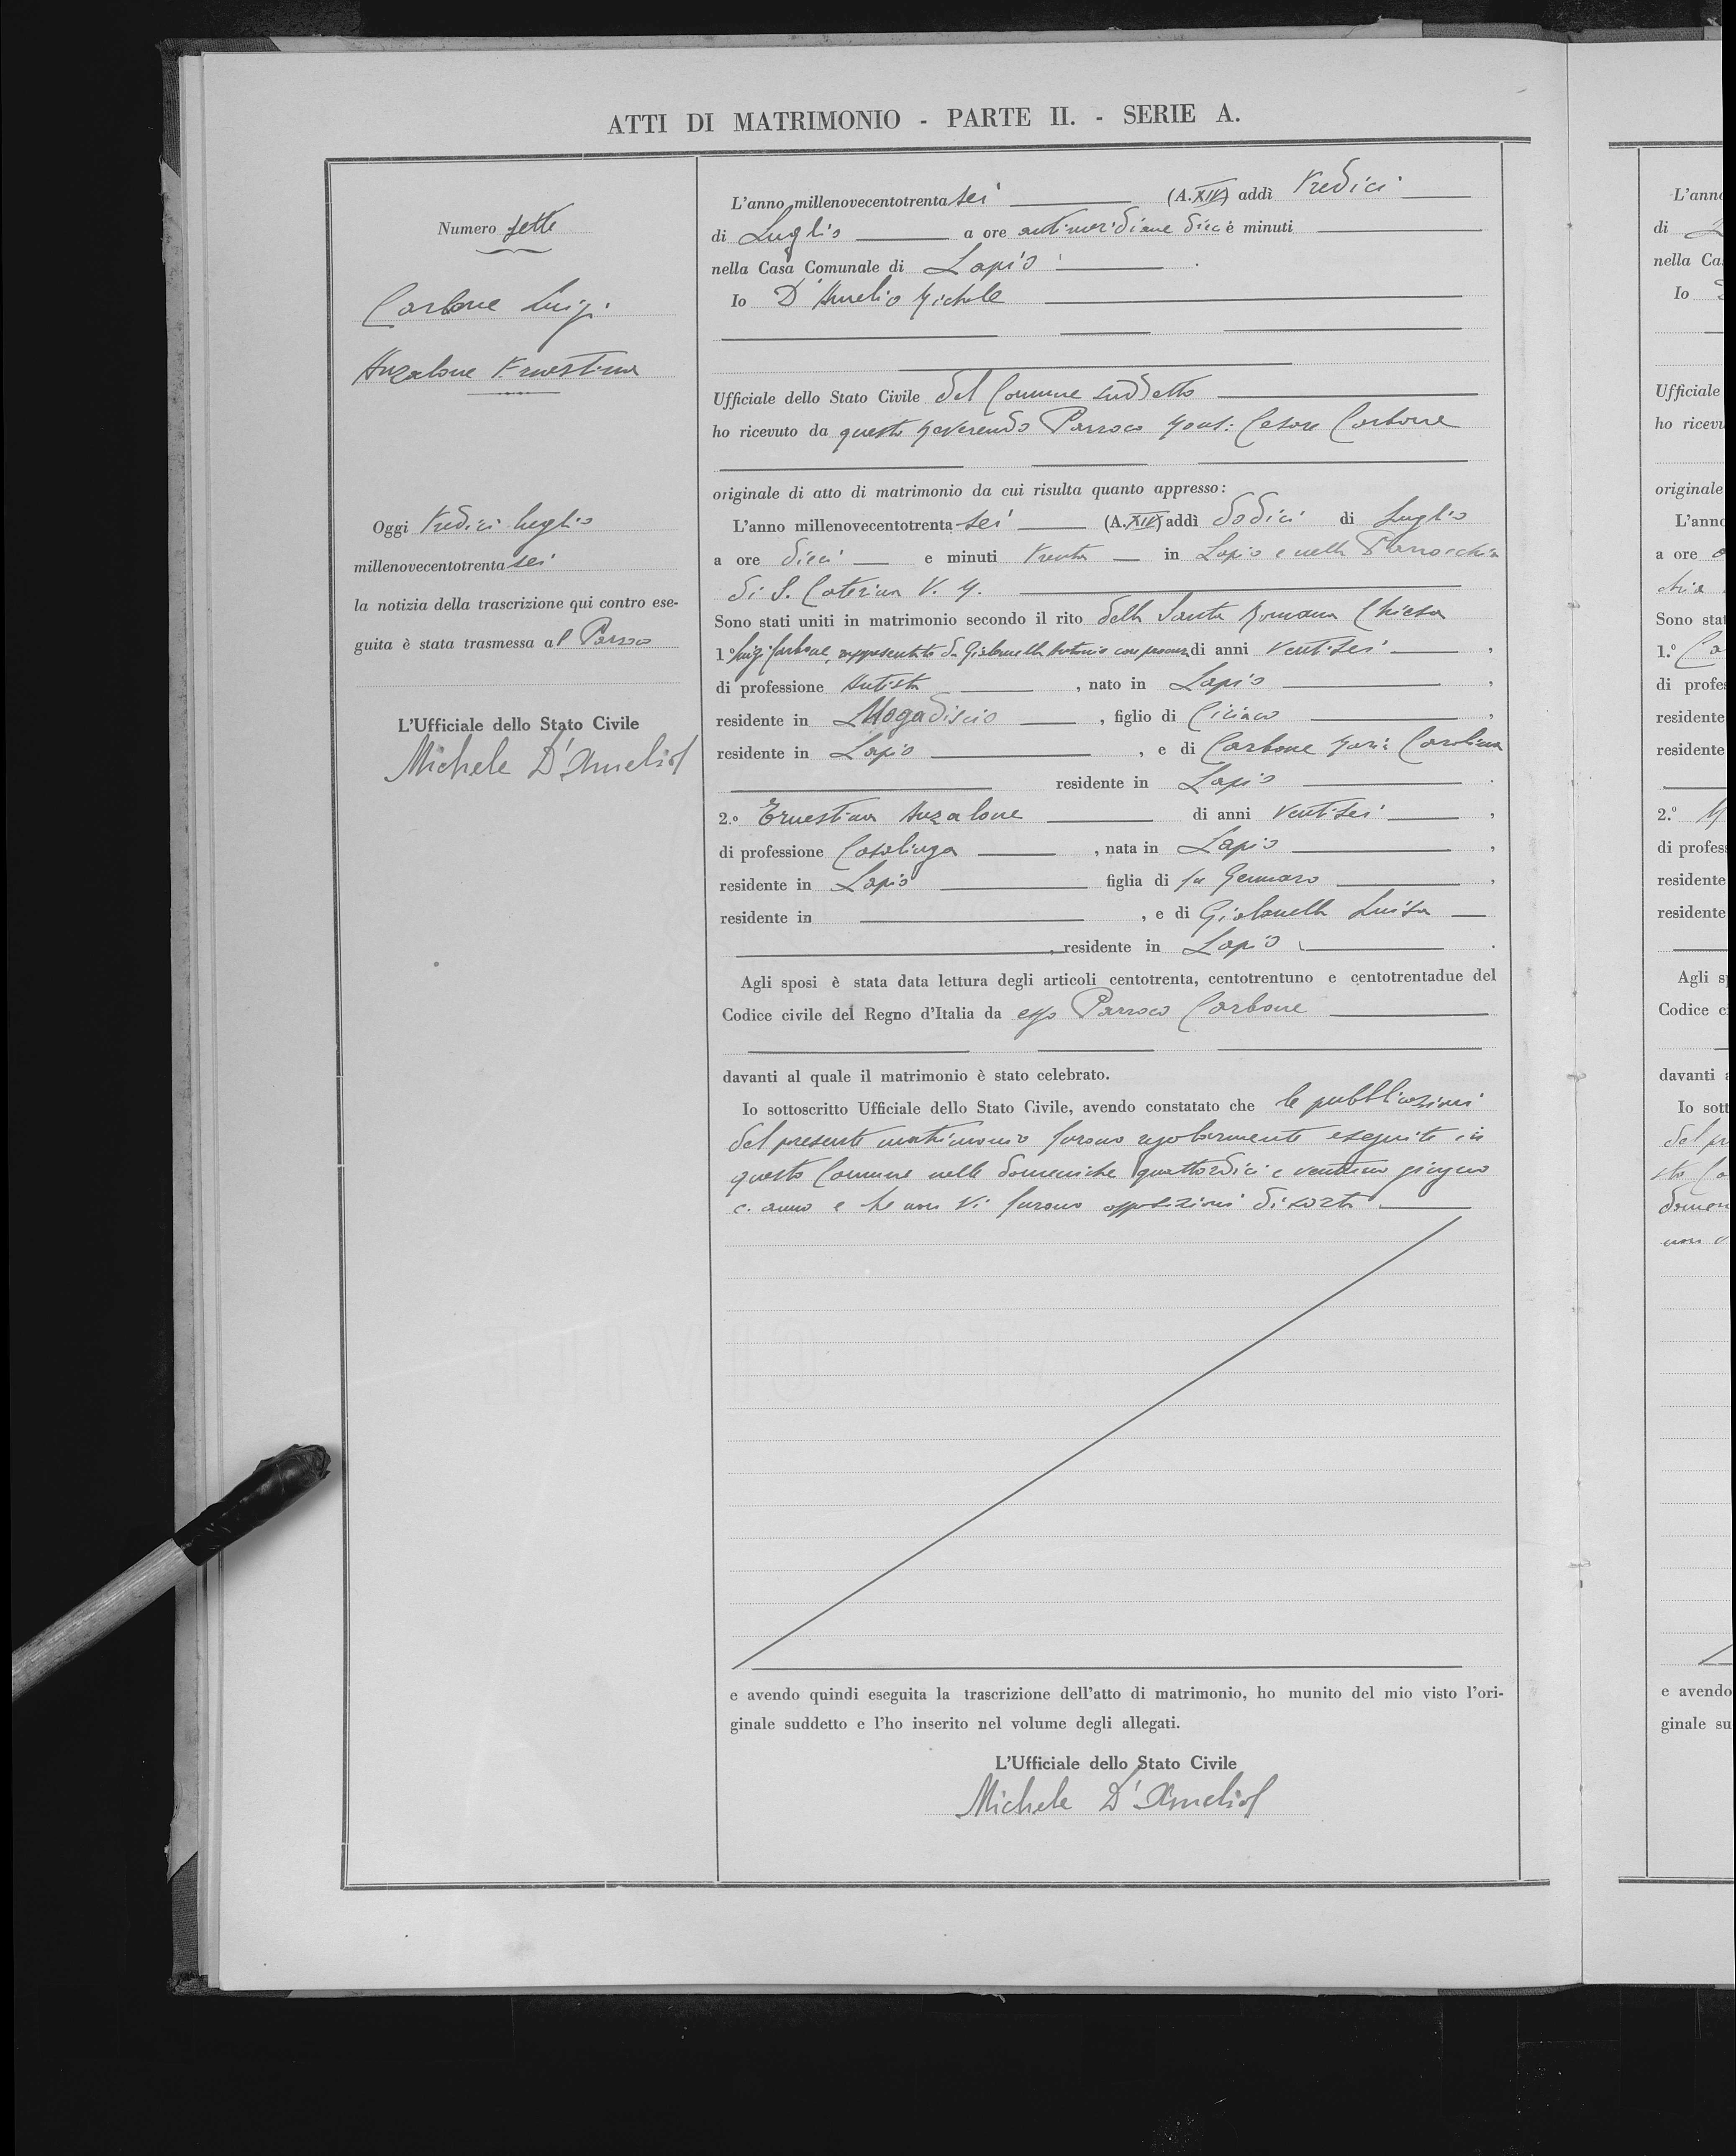 ATTI DI MATRIMONIO - PARTE II. - SERIE A.
Numero sette
Carbone Luigi
Anzalone Ernestina
Oggi tredici luglio
millenovecentotrentasei
la notizia della trascrizione qui contro ese-
guita è stata trasmessa al Parroco
L'Ufficiale dello Stato Civile
Michele D'Amelio
L'anno millenovecentotrentasei (A. XIV) addì tredici
di Luglio a ore antimeridiane dieci e minuti
nella Casa Comunale di Lapio
Io D'Amelio Michele
Ufficiale dello Stato Civile del Comune suddetto
ho ricevuto da questo Reverendo Parroco Mons: Cesare Carbone
originale di atto di matrimonio da cui risulta quanto appresso:
L'anno millenovecentotrenta-sei (A. XIV) addì dodici di Luglio
a ore dieci e minuti trenta in Lapio e nella Parrocchia
di S. Caterina V. M.
Sono stati uniti in matrimonio secondo il rito della Santa Romana Chiesa
1.º Luigi Carbone, rappresentato da Giolonella Antonio con procura di anni ventisei,
di professione Autista, nato in Lapio,
residente in Mogadiscio, figlio di Ciriaco,
residente in Lapio, e di Carbone Maria Carolina
residente in Lapio.
2.º Ernestina Anzalone di anni ventisei,
di professione Casalinga, nata in Lapio,
residente in Lapio figlia di fu Gennaro,
residente in , e di Giolonella Luisa
, residente in Lapio.
Agli sposi è stata data lettura degli articoli centotrenta, centotrentuno e centotrentadue del
Codice civile del Regno d'Italia da esso Parroco Carbone
davanti al quale il matrimonio è stato celebrato.
Io sottoscritto Ufficiale dello Stato Civile, avendo constatato che le pubblicazioni
del presente matrimonio furono regolarmente eseguite in
questo Comune nelle domeniche quattordici e ventuno giugno
c. anno e che non vi furono opposizioni di sorta.
e avendo quindi eseguita la trascrizione dell'atto di matrimonio, ho munito del mio visto l'ori-
ginale suddetto e l'ho inserito nel volume degli allegati.
L'Ufficiale dello Stato Civile
Michele D'Amelio
L'anno
di
nella Ca
Io
Ufficiale
ho ricevu
originale
L'anno
a ore
Sono stat
1.º Ca
di profes
residente
residente
2.º M
di profess
residente
residente
Agli sp
Codice c
davanti a
Io sott
del pr
sto Co
domen
non v
e avendo
ginale su